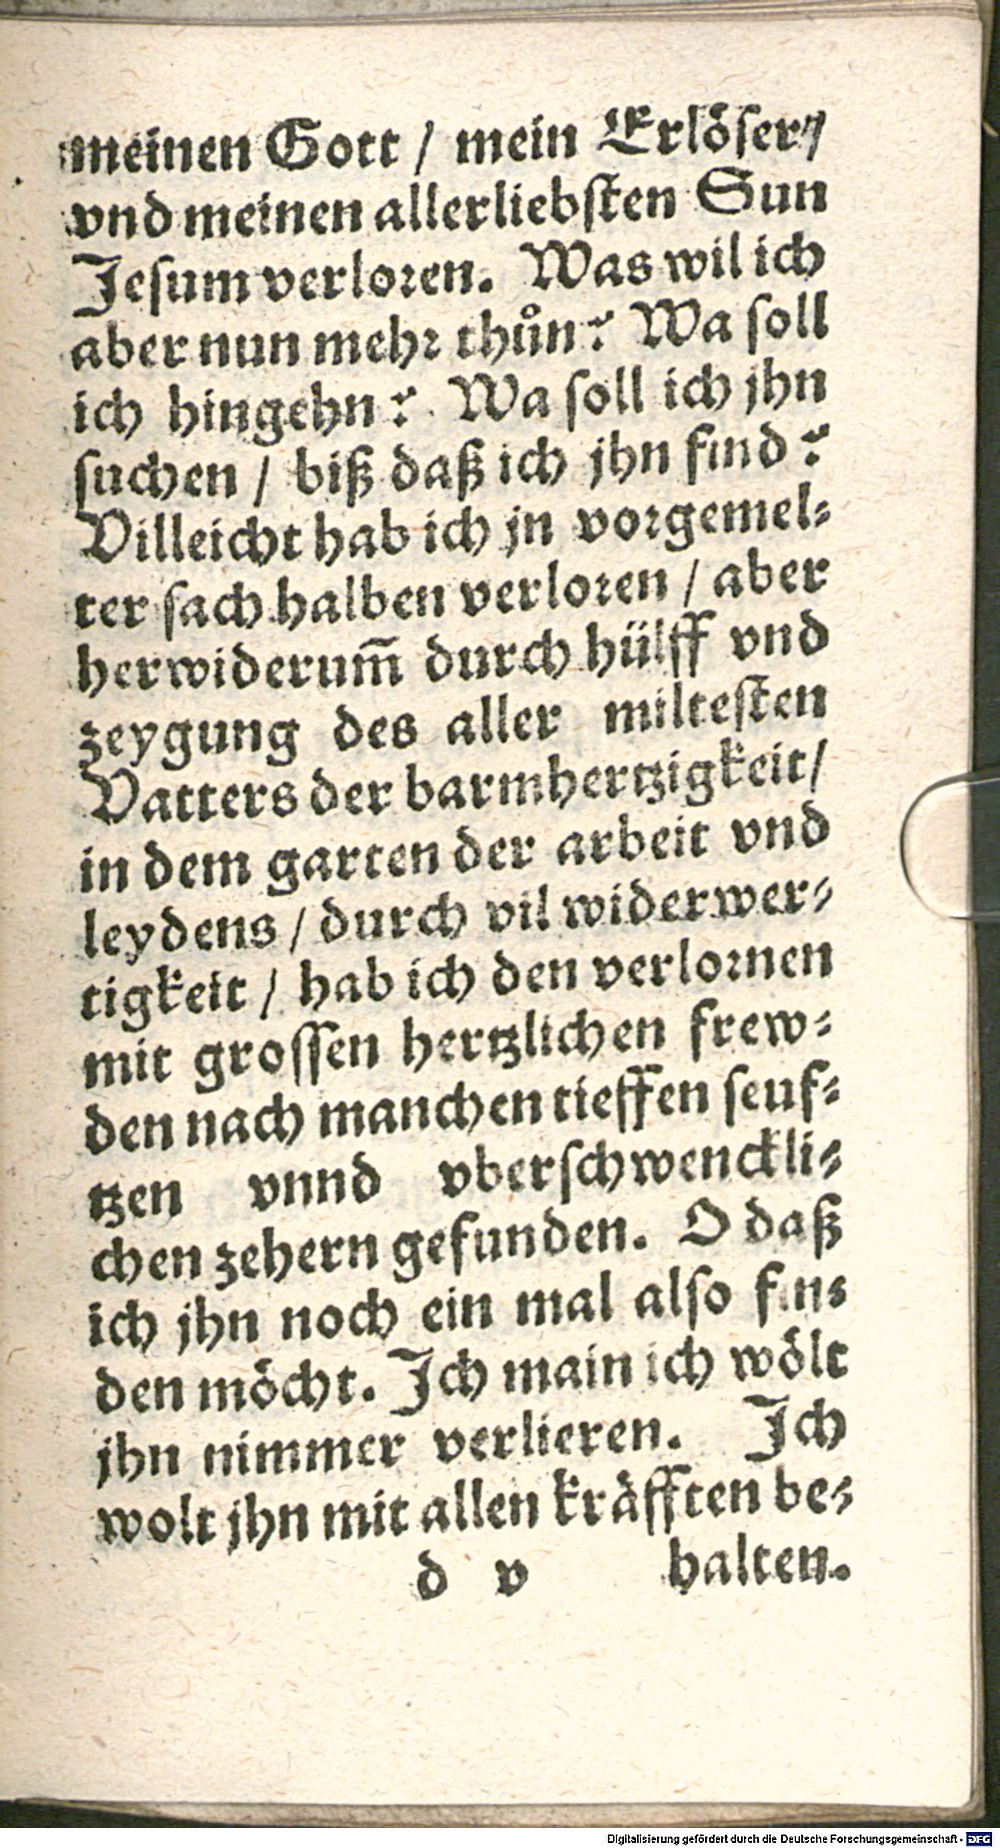 meinen Gott / mein Erlöser /
vnd meinen allerliebsten Sun
Jesum verloren. Was wil ich
aber nun mehr thůn? Wa soll
ich hingehn? Wa soll ich jhn
suchen / biß daß ich jhn find?
Villeicht hab ich jn vorgemel-
ter sach halben verloren / aber
herwiderum̃ durch hülff vnd
zeygung des aller miltesten
Vatters der barmhertzigkeit /
in dem garten der arbeit vnd
leydens / durch vil widerwer-
tigkeit / hab ich den verlornen
mit grossen hertzlichen frew-
den nach manchen tieffen seuf-
tzen vnnd vberschwenckli-
chen zehern gefunden. O daß
ich jhn noch ein mal also fin-
den möcht. Ich main ich wölt
jhn nimmer verlieren. Ich
wolt jhn mit allen kräfften be-
d v halten.
Digitalisierung gefördert durch die Deutsche Forschungsgemeinschaft - DFG